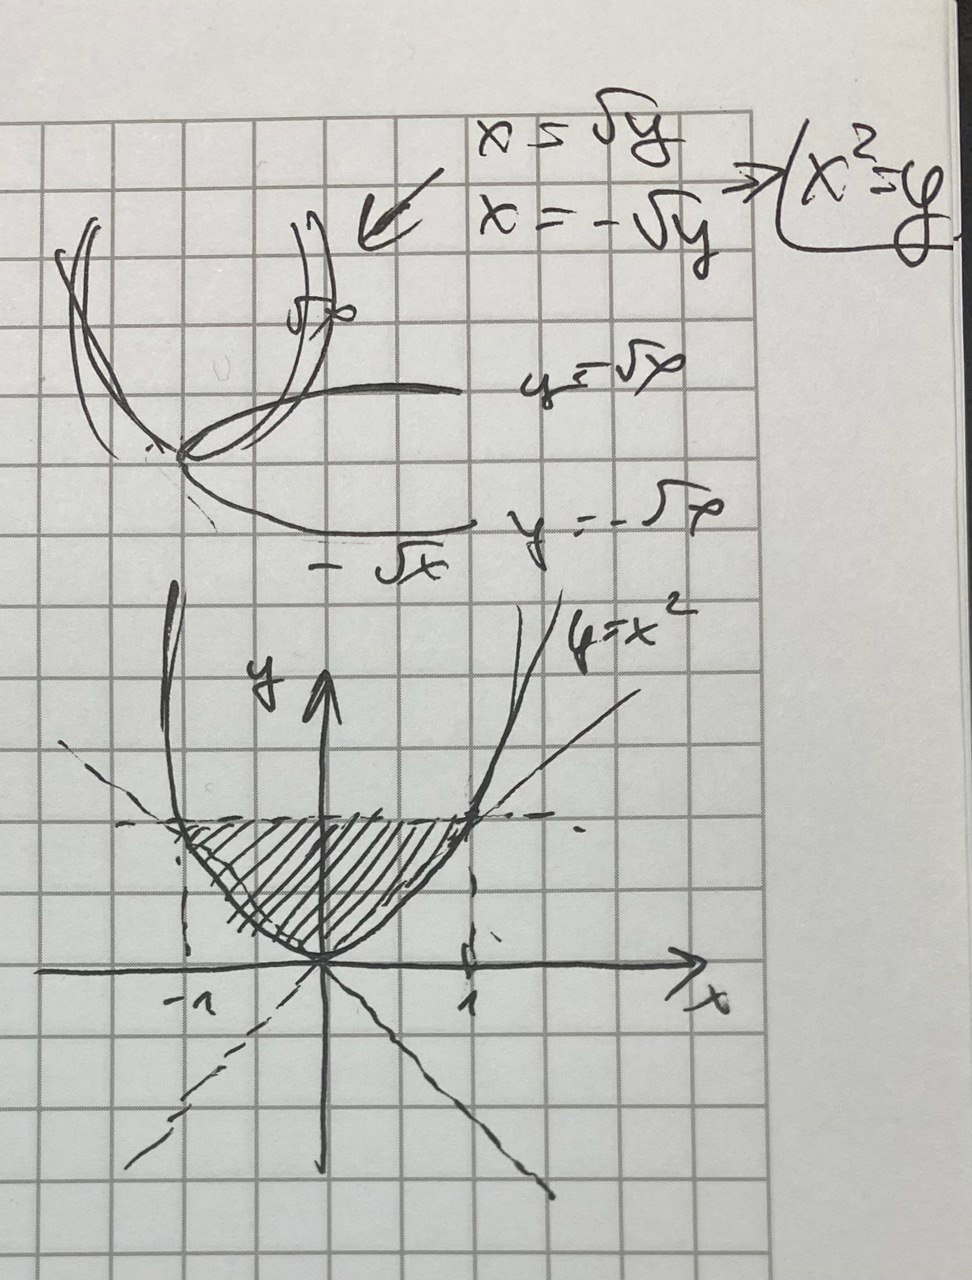 x = √y
x = -√y ⇒ x² = y
√x
y = √x
y = -√x
- √x
y = x²
y
-1 1
x